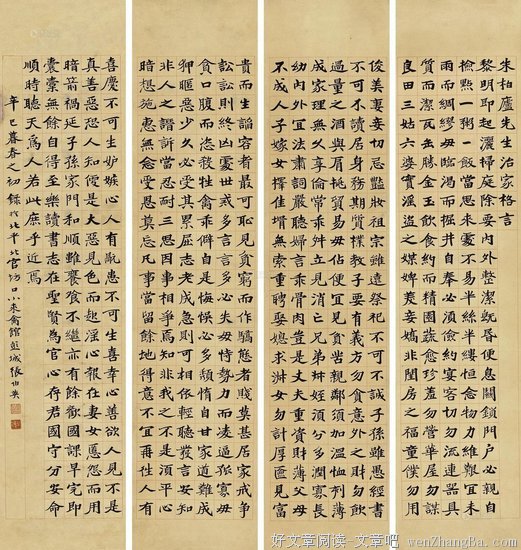 朱柏廬先生治家格言
黎明即起灑掃庭除要内外整潔既昏便息關鎖門戶必親自
檢點一粥一飯當思來處不易半絲半縷恒念物力維艱宜未
雨而綢繆毋臨渴而掘井自奉必須儉約宴客切勿流連器具
質而潔瓦缶勝金玉飲食約而精園蔬愈珍羞勿營華屋勿謀
良田三姑六婆實淫盜之媒婢美妾嬌非閨房之福童僕勿用
俊美妻妾切忌艷妝祖宗雖遠祭祀不可不誠子孫雖愚經書
不可不讀居身務期質樸教子要有義方勿貪意外之財勿飲
過量之酒與肩挑貿易毋佔便宜見貧苦親鄰須加溫恤刻薄
成家理無久享倫常乖舛立見消亡兄弟叔姪須分多潤寡長
幼内外宜法肅詞嚴聽婦言乖骨肉豈是丈夫重資財薄父母
不成人子嫁女擇佳壻無索重聘娶媳求淑女勿計厚匲見富
貴而生諂容者最可恥見貧窮而作驕態者賤莫甚居家戒爭
訟訟則終凶處世戒多言言多必失毋恃勢力而凌逼孤寡毋
貪口腹而恣殺牲禽乖僻自是悔誤必多頹惰自甘家道難成
狎暱惡少久必受其累屈志老成急則可相依輕聽發言安知
非人之譖訴當忍耐三思因事相爭焉知非我之不是須平心
暗想施惠無念受恩莫忘凡事當留餘地得意不宜再往人有
喜慶不可生妒嫉心人有禍患不可生喜幸心善欲人見不是
真善惡恐人知便是大惡見色而起淫心報在妻女匿怨而用
暗箭禍延子孫家門和順雖饔飧不繼亦有餘歡國課早完即
囊橐無餘自得至樂讀書志在聖賢為官心存君國守分安命
順時聽天為人若此庶乎近焉
辛巳暮春之初錄於北平北官坊口小來禽館彭城張伯英
好文章阅读-文章吧
wenZhangBa.com